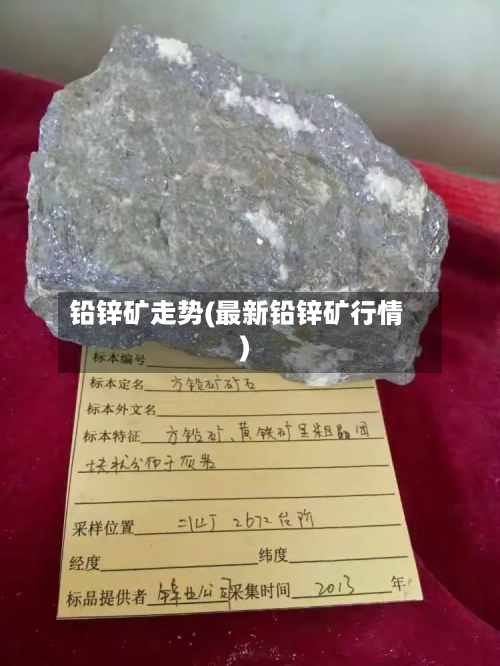 铅锌矿走势(最新铅锌矿行情
)
标本编号
标本定名 方铅矿矿石
标本外文名
标本特征 方铅矿、黄铁矿呈粗晶团
块状分布于顶岩
采样位置 二山丁 2672台阶
经度 纬度
标品提供者 锌业公司 采集时间 2013 年